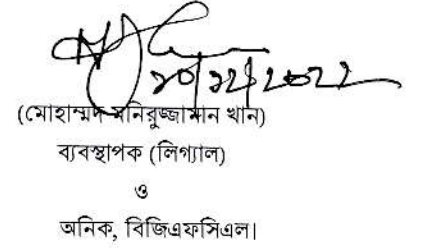 ২০/১২/২০২২
(মোহাম্মদ মনিরুজ্জামান খান)
ব্যবস্থাপক (লিগ্যাল)
ও
অনিক, বিজিএফসিএল।